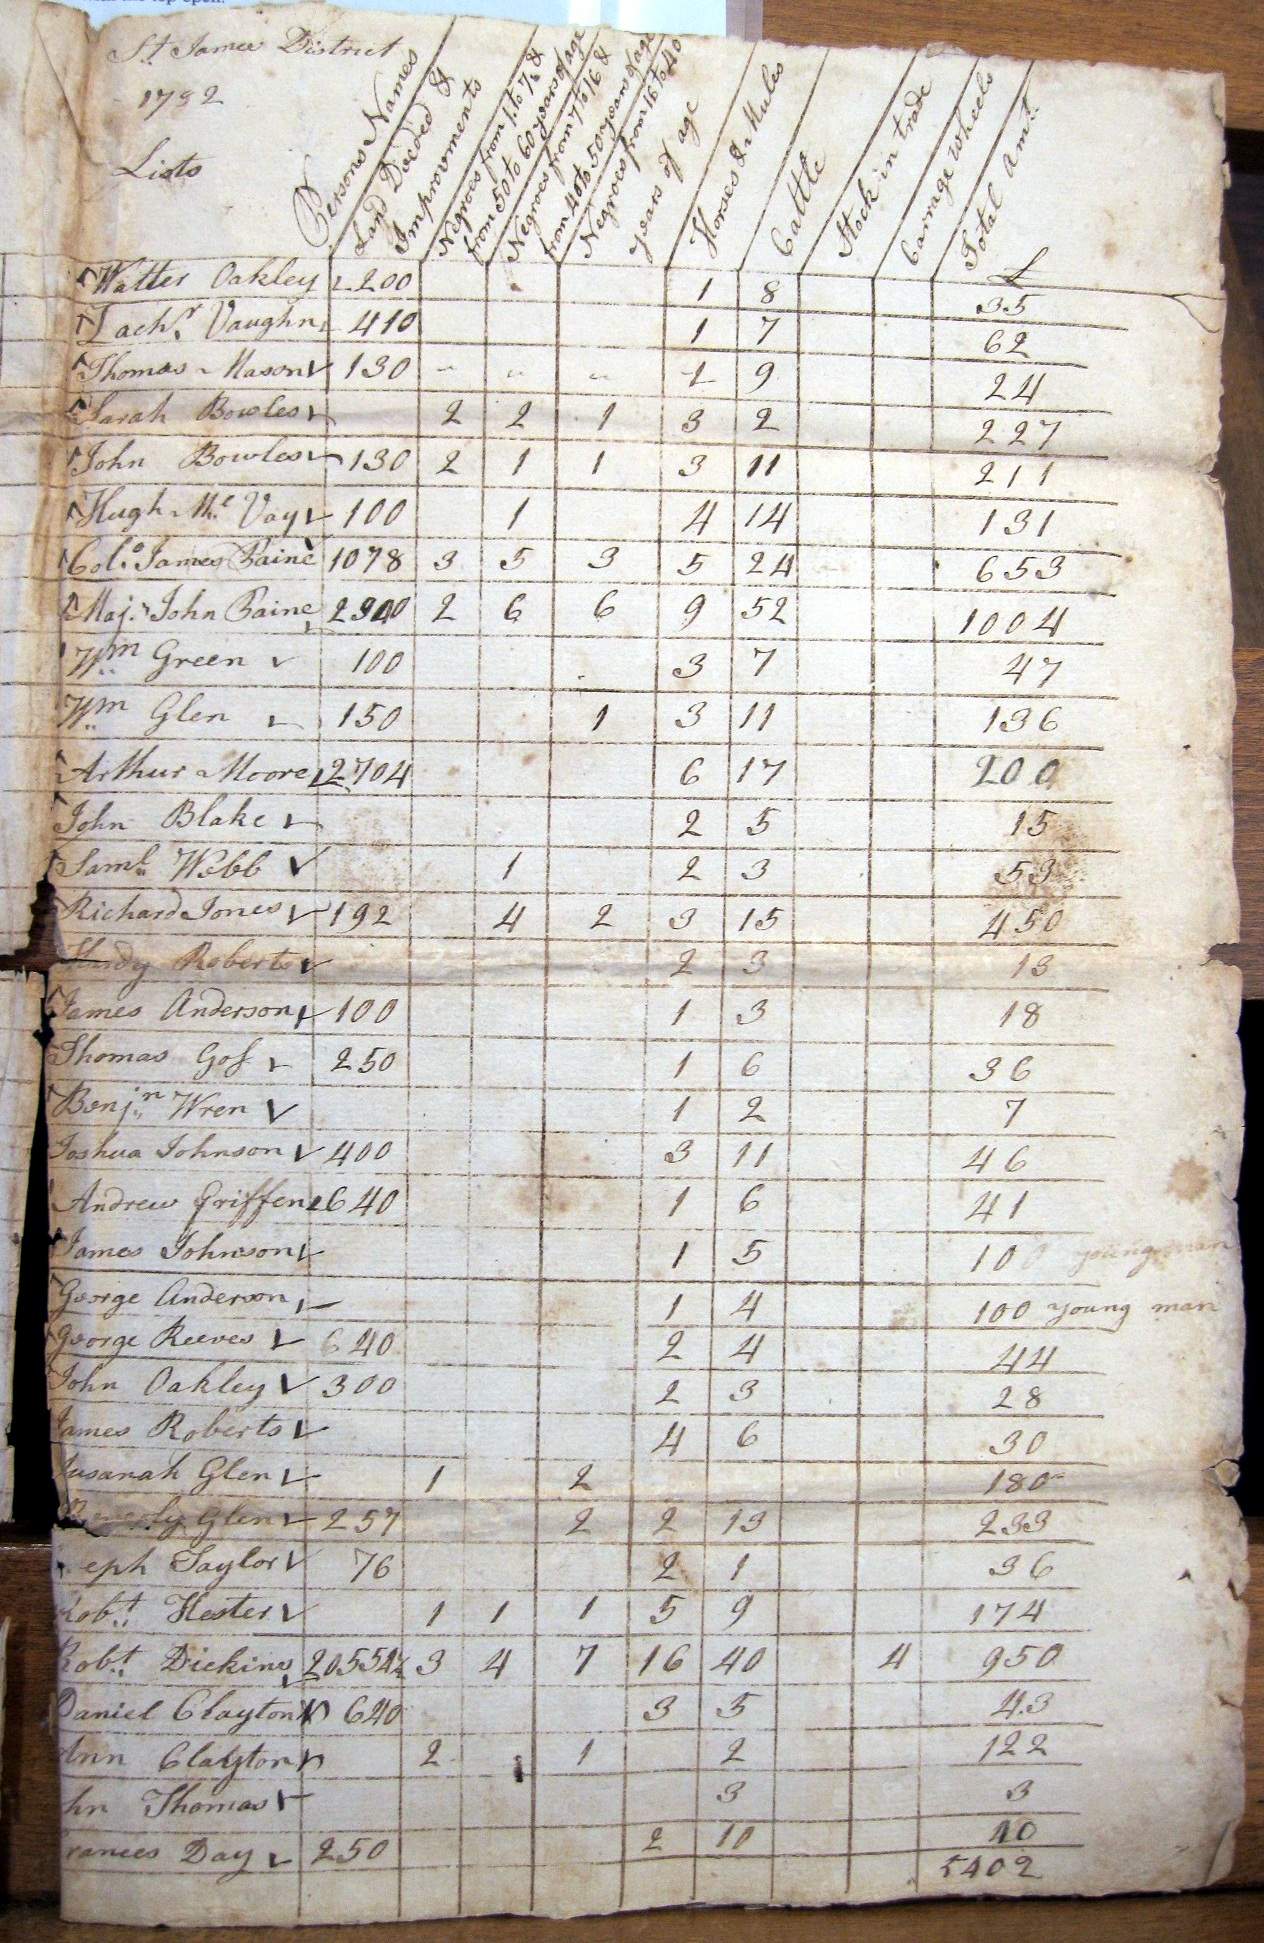 St. James District
1782
Lists
Persons Names
Land Deeded &
Improvements
Negroes from 1 to 7 &
from 50 to 60 years of age
Negroes from 7 to 16 &
from 40 to 50 years of age
Negroes from 16 to 40
years of age
Horses & Mules
Cattle
Stock in trade
Carriage wheels
Total Amt.
£
Walter Oakley 200 1 8 35
Zachr. Vaughn 410 1 7 62
Thomas Mason 130 " " " 1 9 24
Sarah Bowles 2 2 1 3 2 227
John Bowles 130 2 1 1 3 11 211
Hugh Mc. Vay 100 1 4 14 131
Colo. James Paine 1078 3 5 3 5 24 653
Maj.r John Paine 2 6 6 9 52 1004
Wm Green 100 3 7 47
Wm Glen 150 1 3 11 136
Arthur Moore 2704 6 17 200
John Blake 2 5 15
Saml. Webb 1 2 3 53
Richard Jones 192 4 2 3 15 450
Hardy Roberts 2 3 13
James Anderson 100 1 3 18
Thomas Gof 250 1 6 36
Benj.n Wren 1 2 7
Joshua Johnson 400 3 11 46
Andrew Griffen 640 1 6 41
James Johnson 1 5 10 young man
George Anderson 1 4 100 young man
George Reeves 640 2 4 44
John Oakley 300 2 3 28
James Roberts 4 6 30
Susanah Glen 1 2 180
Glen 257 2 2 13 233
eph Taylor 76 2 1 36
Robt. Hester 1 1 1 5 9 174
Robt. Dickins 20554½ 3 4 7 16 40 4 950
Daniel Clayton 640 3 5 43
Ann Clayton 2 1 2 122
hn Thomas 3 3
rances Day 250 2 10 40
5402